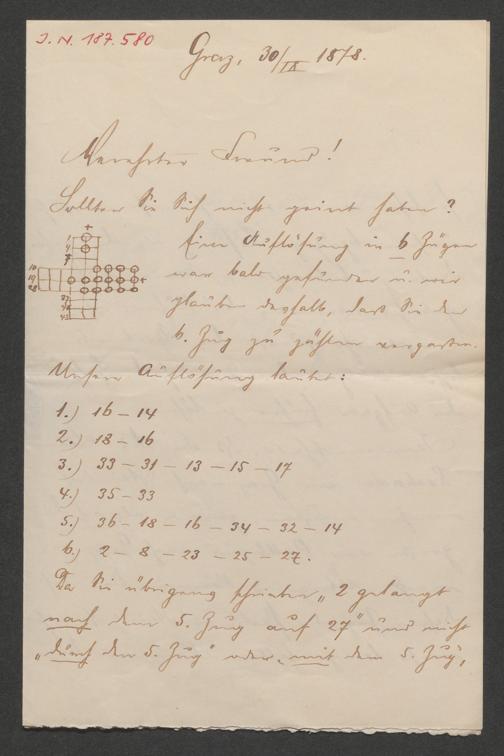 I. N. 187.580
Graz, 30/IX 1878.
Verehrter Freund!
Sollten Sie Sich nicht geirrt haben?
Eine Auflösung in 6 Zügen
war bald gefunden u. wir
glauben deshalb, daß Sie den
6. Zug zu zählen vergaßen.
Unsere Auflösung lautet:
1.) 16 – 14
2.) 18 – 16
3.) 33 – 31 – 13 – 15 – 17
4.) 35 – 33
5.) 36 – 18 – 16 – 34 – 32 – 14
6.) 2 – 8 – 23 – 25 – 27.
Da Sie übrigens schrieben „2 gelangt
nach dem 5. Zug auf 27" und nicht
„durch den 5. Zug" oder „mit dem 5. Zug",